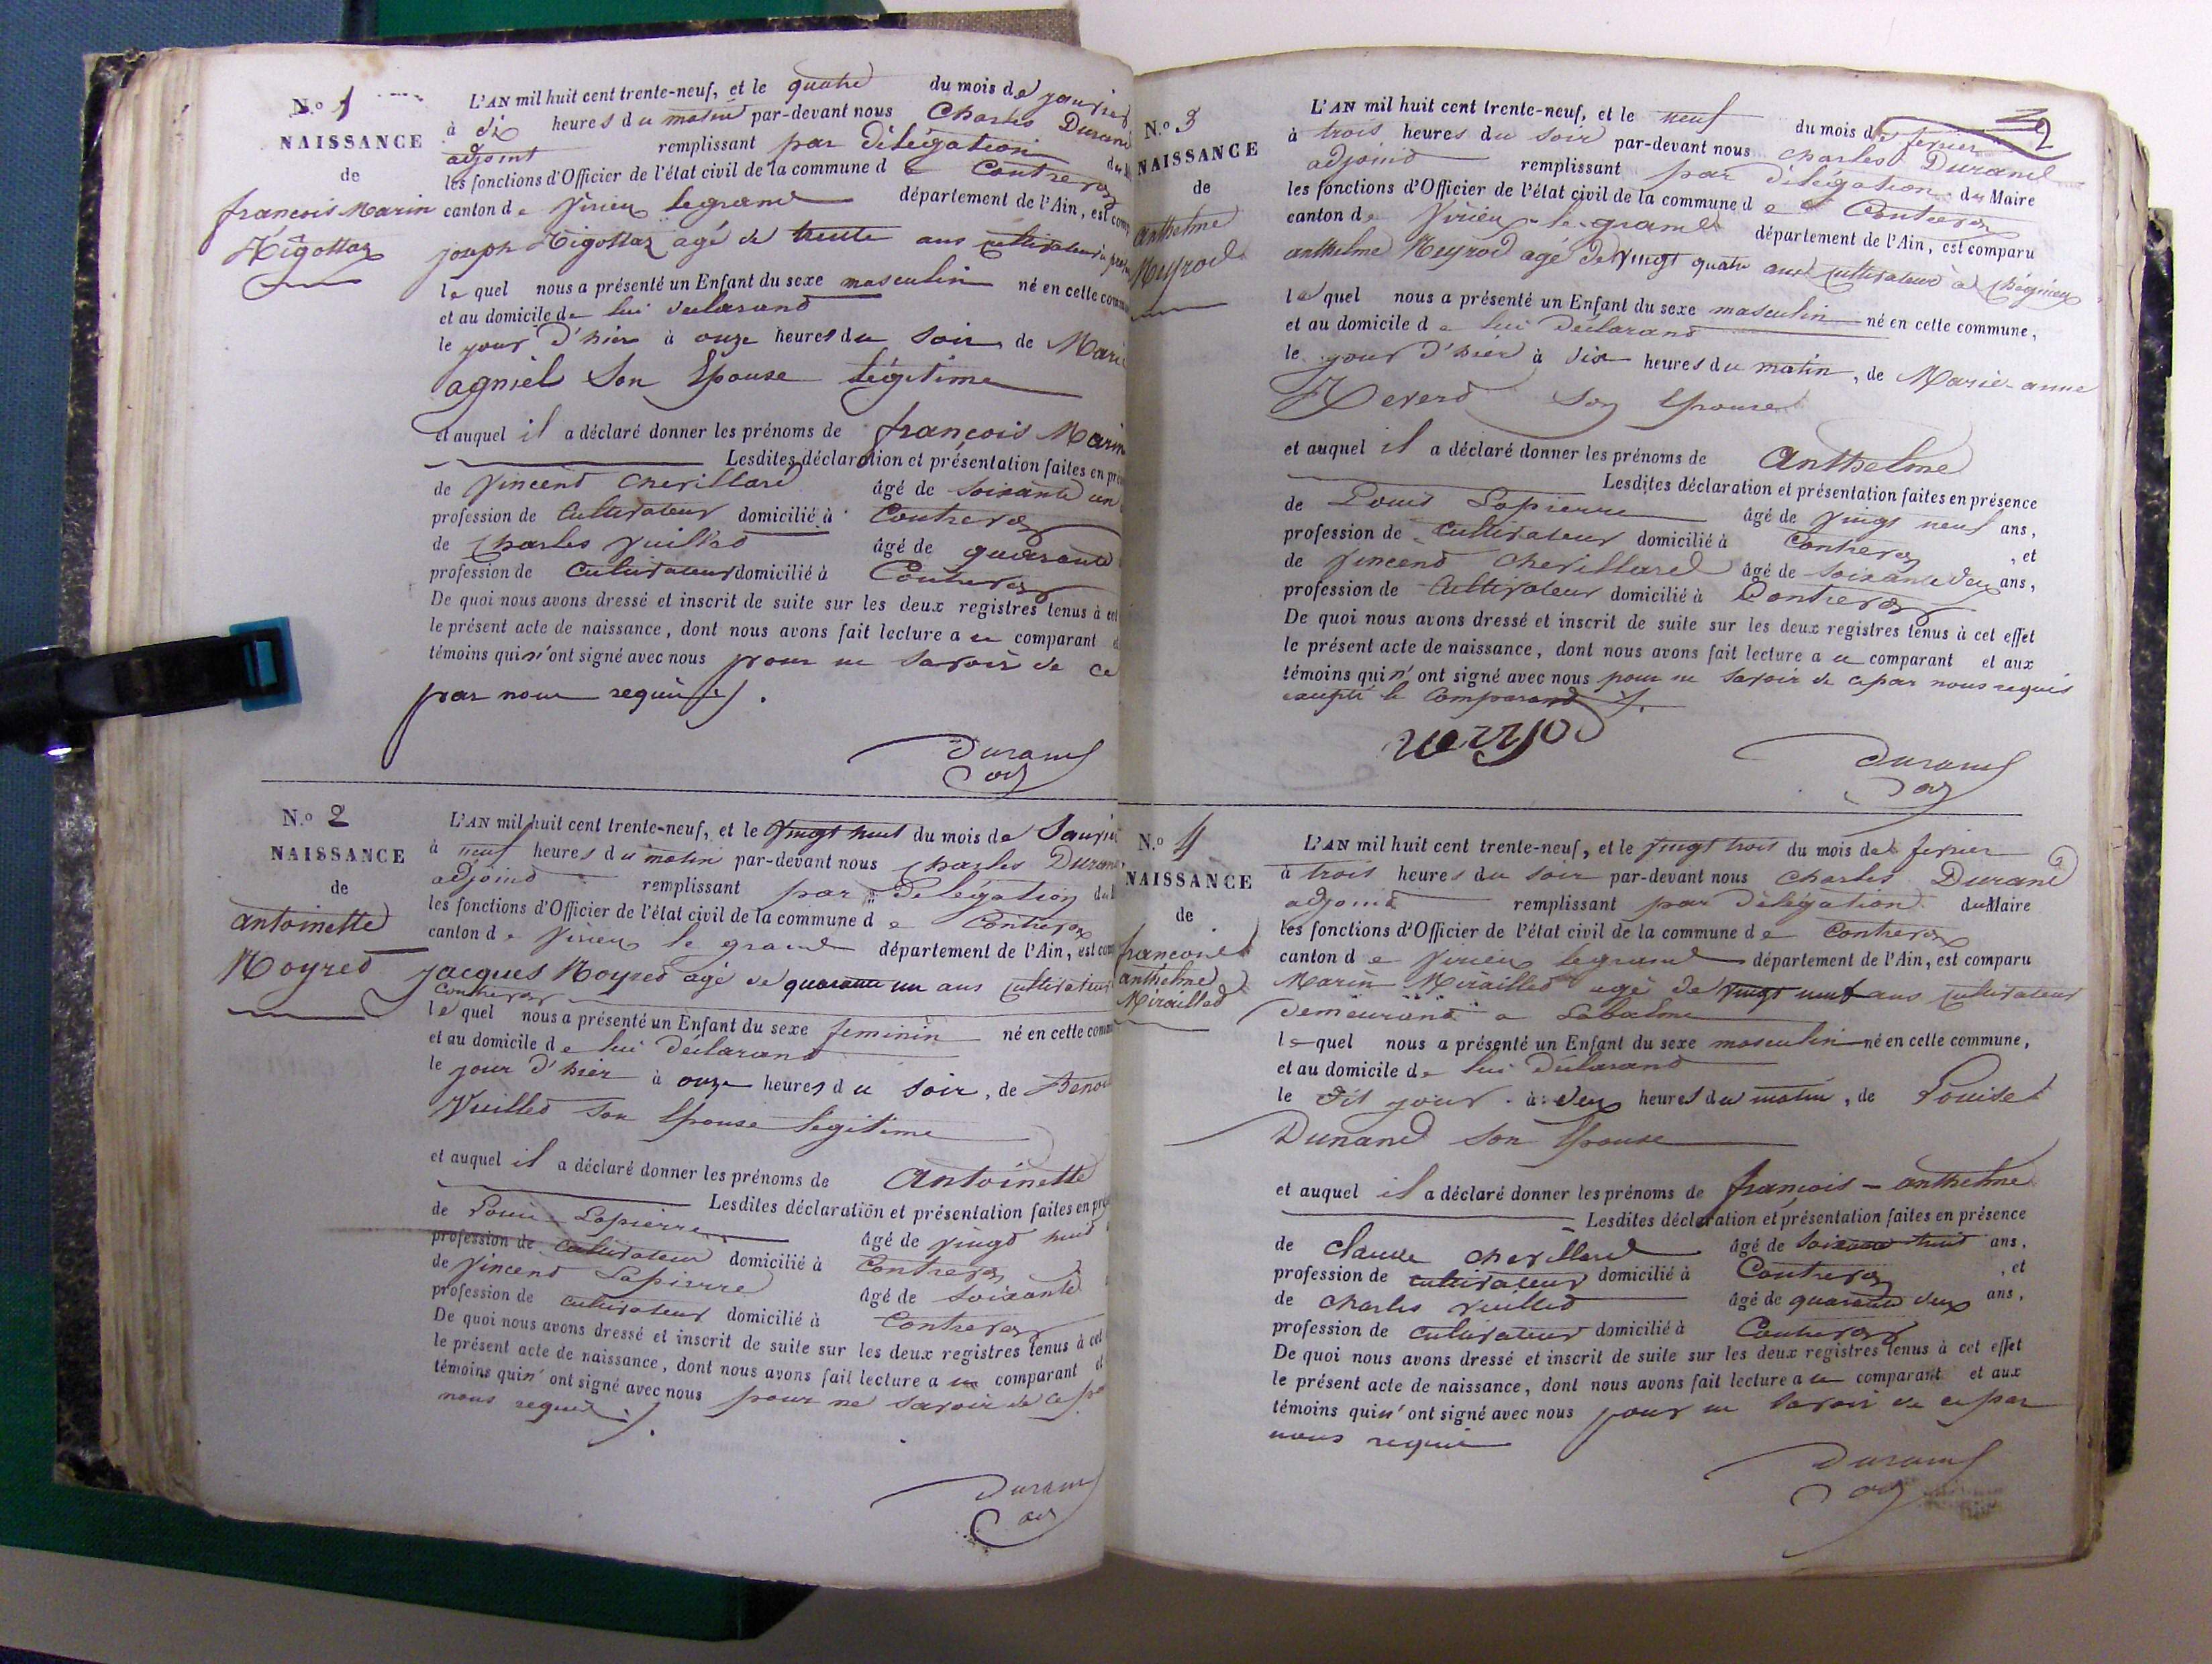 N.o 1
NAISSANCE
de
françois Marin
L'AN mil huit cent trente-neuf, et le quatre du mois de janvier
à dix heures du matin par-devant nous Charles Durand
adjoint remplissant par délégation du
les fonctions d'Officier de l'état civil de la commune de Contrevoz
canton de Virieu legrand département de l'Ain, est comp
joseph agé de trente ans cultivateur
lequel nous a présenté un Enfant du sexe masculin né en cette commu
et au domicile de lui declarand
le jour d'hier à onze heures du soir de Marie
agniel Son Epouse légitime
et auquel il a déclaré donner les prénoms de françois Marin
Lesdites déclaration et présentation faites en pré
de Vincend Chevillard âgé de soixante un
profession de Cultivateur domicilié à Contrevoz
de Charles Vuilliod âgé de quarante
profession de Cultivateur domicilié à Contrevoz
De quoi nous avons dressé et inscrit de suite sur les deux registres tenus à cet
le présent acte de naissance, dont nous avons fait lecture a ce comparant et
témoins qui n'ont signé avec nous pour ne savoir de ce
par nous requis
Durand
adj
N.o 2
NAISSANCE
de
antoinette
Noyred
L'AN mil huit cent trente-neuf, et le Vingt huit du mois de Janvier
à neuf heures du matin par-devant nous Charles Durand
adjoind remplissant par Délégation du
les fonctions d'Officier de l'état civil de la commune de Contrevoz
canton de Virieu le grand département de l'Ain, est com
jacques Noyred agé de quarante un ans cultivateur
Contrevoz
lequel nous a présenté un Enfant du sexe feminin né en cette comm
et au domicile de lui Déclarand
le jour d'hier à onze heures du soir, de Benoi
Vuilled son Epouse légitime
et auquel il a déclaré donner les prénoms de Antoinette
Lesdites déclaration et présentation faites en pré
de Louis Lapierre âgé de vingt huit
profession de Cultivateur domicilié à Contrevoz
de Vincend Lapierre âgé de soixante
profession de Cultivateur domicilié à Contrevoz
De quoi nous avons dressé et inscrit de suite sur les deux registres tenus à cet
le présent acte de naissance, dont nous avons fait lecture a ce comparant et
témoins qui n'ont signé avec nous pour ne savoir de ce par
nous requis
Durand
adj
2
N.o 3
NAISSANCE
de
Anthelme
Neyrod
L'AN mil huit cent trente-neuf, et le neuf du mois de fevrier
à trois heures du soir par-devant nous Charles Durand
adjoind remplissant par délégation du Maire
les fonctions d'Officier de l'état civil de la commune de Contrevoz
canton de Virieu-le-grand département de l'Ain, est comparu
anthelme Neyrod agé de vingt quatre ans cultivateur à Chégnieu
lequel nous a présenté un Enfant du sexe masculin né en cette commune,
et au domicile de lui Déclarand
le jour d'hier à dix heures du matin, de Marie-anne
Son Epouse
et auquel il a déclaré donner les prénoms de Anthelme
Lesdites déclaration et présentation faites en présence
de Louis Lapierre âgé de vingt neuf ans,
profession de Cultivateur domicilié à Contrevoz, et
de Vincend Chevillard âgé de soixante deux ans,
profession de Cultivateur domicilié à Contrevoz
De quoi nous avons dressé et inscrit de suite sur les deux registres tenus à cet effet
le présent acte de naissance, dont nous avons fait lecture a ce comparant et aux
témoins qui n'ont signé avec nous pour ne savoir de ce par nous requis
excepté le Comparand
Durand
adj
N.o 4
NAISSANCE
de
francois
anthelme
Mirailled
L'AN mil huit cent trente-neuf, et le vingt trois du mois de fevrier
à trois heures du soir par-devant nous Charles Durand
adjoind remplissant par délégation du Maire
les fonctions d'Officier de l'état civil de la commune de Contrevoz
canton de Virieu legrand département de l'Ain, est comparu
Marin Mirailled agé de vingt neuf ans cultivateur
demeurand a Labalme
lequel nous a présenté un Enfant du sexe masculin né en cette commune,
et au domicile de lui Déclarand
le dit jour à deux heures du matin, de Louise
Dunand son Epouse
et auquel il a déclaré donner les prénoms de françois - anthelme
Lesdites déclaration et présentation faites en présence
de Claude Chevillard âgé de soixante huit ans,
profession de cultivateur domicilié à Contrevoz, et
de Charles Vuilled âgé de quarante deux ans,
profession de Cultivateur domicilié à Contrevoz
De quoi nous avons dressé et inscrit de suite sur les deux registres tenus à cet effet
le présent acte de naissance, dont nous avons fait lecture a ce comparant et aux
témoins qui n'ont signé avec nous pour ne savoir de ce par
nous requis
Durand
adj